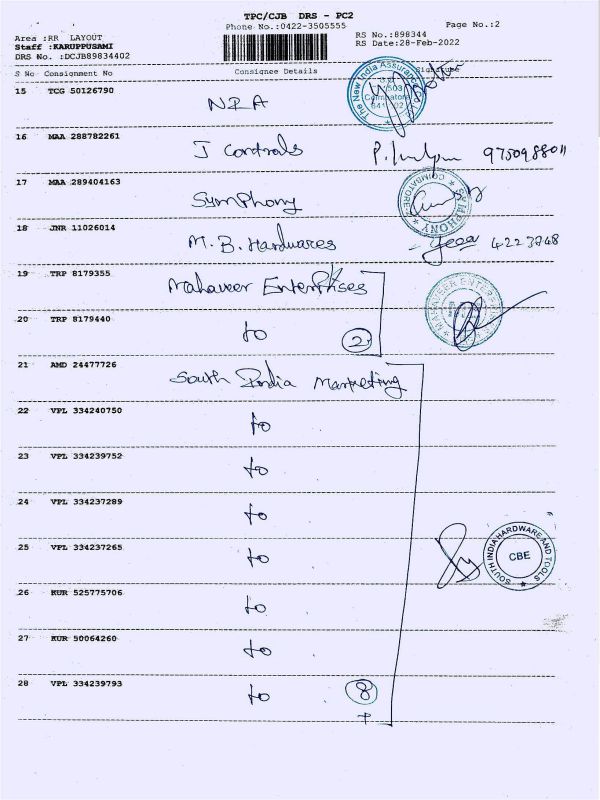 TPC/CJB DRS - PC2
Phone No.:0422-3505555
Page No.:2
Area :RR LAYOUT
Staff :KARUPPUSAMI
DRS No. :DCJB89834402
RS No.:898344
RS Date:28-Feb-2022
S No Consignment No Consignee Details Signature
15 TCG 50126790 NIA
The New India Assurance Co. Coimbatore
16 MAA 288782261 J Controls 9750988011
17 MAA 289404163 Symphony
SYMPHONY COIMBATORE
18 JNR 11026014 M.B. Hardwares 4223748
19 TRP 8179355 Mahaveer Enterprises
MAHAVEER ENTERPRISES
20 TRP 8179440 to 2
21 AMD 24477726 South India Marketing
22 VPL 334240750 to
23 VPL 334239752 to
24 VPL 334237289 to
25 VPL 334237265 to
SOUTH INDIA HARDWARE AND TOOLS CBE
26 KUR 525775706 to
27 KUR 50064260 to
28 VPL 334239793 to 8